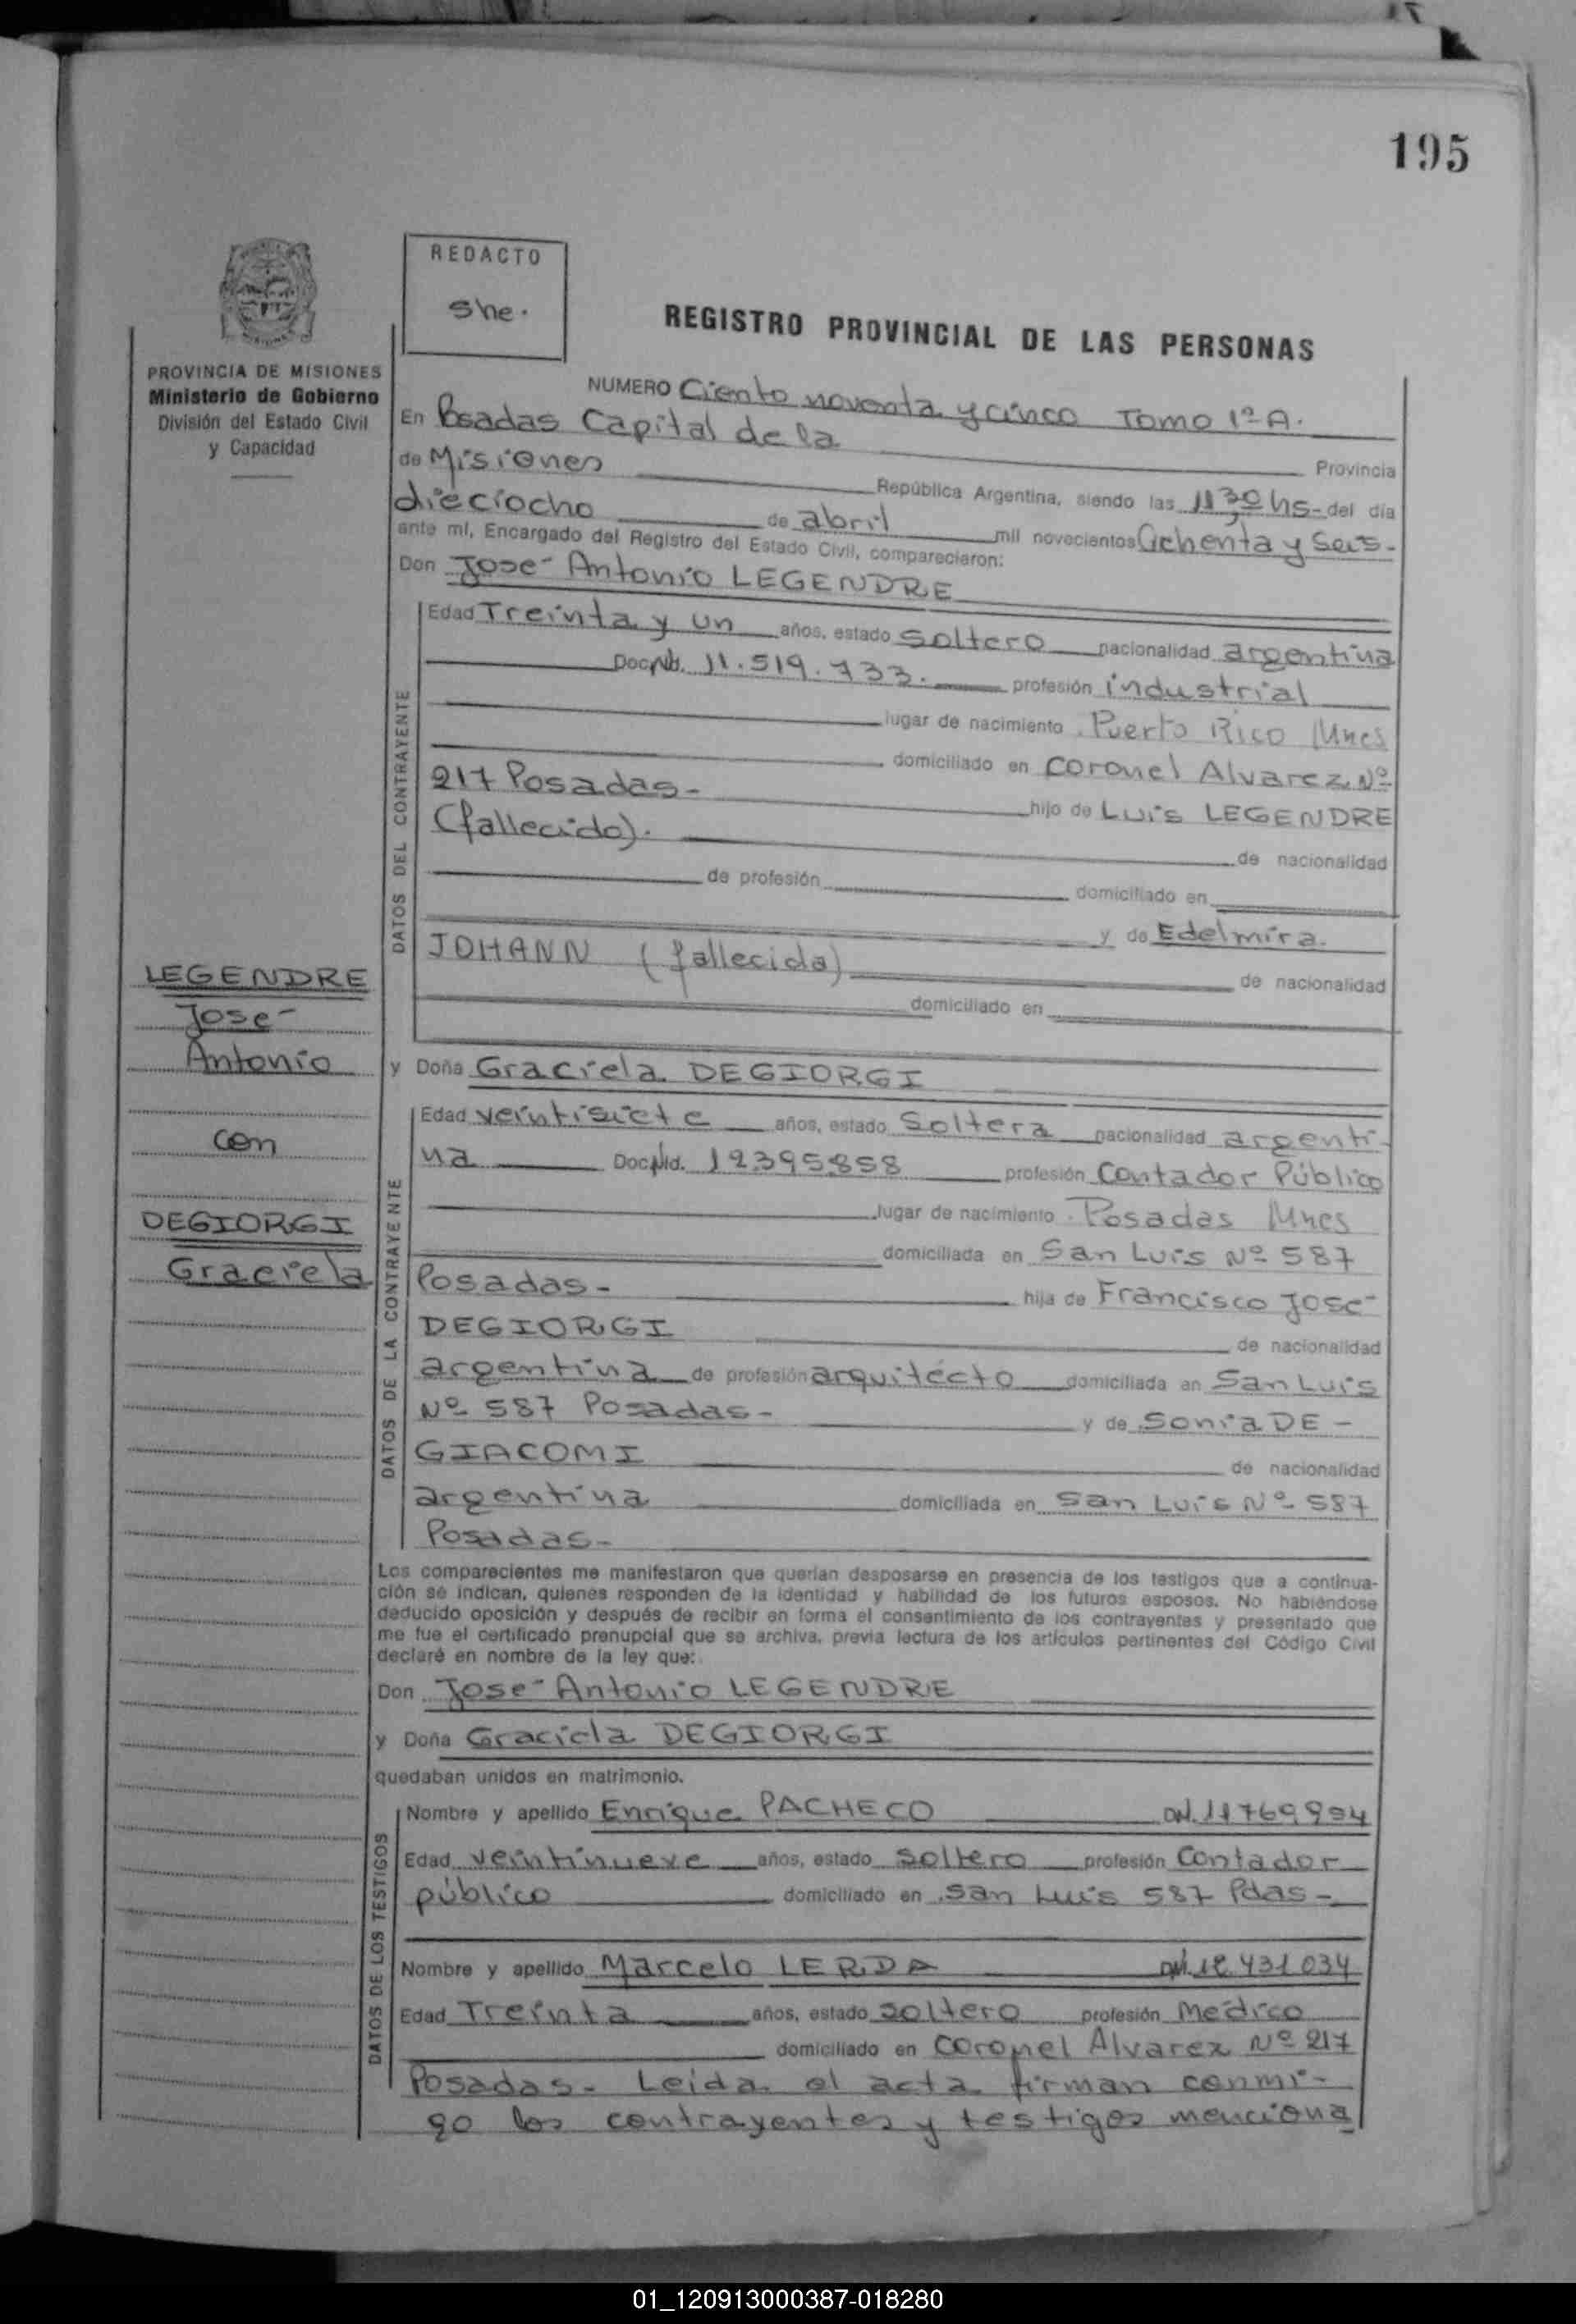 195
REDACTO
She.
REGISTRO PROVINCIAL DE LAS PERSONAS
PROVINCIA DE MISIONES
Ministerio de Gobierno
División del Estado Civil
y Capacidad
NUMERO Ciento noventa y cinco Tomo 1º A.
En Posadas Capital de la Provincia
de Misiones República Argentina, siendo las 11,30 hs- del día
dieciocho de abril mil novecientos Ochenta y Seis-
ante mí, Encargado del Registro del Estado Civil, comparecieron:
Don José Antonio LEGENDRE
DATOS DEL CONTRAYENTE
Edad Treinta y un años, estado Soltero nacionalidad argentina
Doc. Nd. 11.519.733. profesión industrial
lugar de nacimiento Puerto Rico Mnes
domiciliado en Coronel Alvarez Nº
217 Posadas- hijo de Luis LEGENDRE
(fallecido). de nacionalidad
de profesión domiciliado en
y de Edelmira
JOHANN (fallecida) de nacionalidad
domiciliado en
LEGENDRE
José
Antonio
con
DEGIORGI
Graciela
y Doña Graciela DEGIORGI
DATOS DE LA CONTRAYENTE
Edad veintisiete años, estado Soltera nacionalidad argenti-
na Doc. Nd. 12.395.858 profesión Contador Público
lugar de nacimiento Posadas Mnes
domiciliada en San Luis Nº 587
Posadas- hija de Francisco José
DEGIORGI de nacionalidad
argentina de profesión arquitécto domiciliada en San Luis
Nº 587 Posadas- y de Sonia DE-
GIACOMI de nacionalidad
argentina domiciliada en San Luis Nº 587
Posadas-
Los comparecientes me manifestaron que querían desposarse en presencia de los testigos que a continua-
ción se indican, quienes responden de la identidad y habilidad de los futuros esposos. No habiéndose
deducido oposición y después de recibir en forma el consentimiento de los contrayentes y presentado que
me fue el certificado prenupcial que se archiva, previa lectura de los artículos pertinentes del Código Civil
declaré en nombre de la ley que:
Don José Antonio LEGENDRE
y Doña Graciela DEGIORGI
quedaban unidos en matrimonio.
DATOS DE LOS TESTIGOS
Nombre y apellido Enrique PACHECO DNI. 11769994
Edad veintinueve años, estado soltero profesión Contador
público domiciliado en San Luis 587 Pdas-
Nombre y apellido Marcelo LERDA DNI. 12 431 034
Edad Treinta años, estado soltero profesión Médico
domiciliado en Coronel Alvarez Nº 217
Posadas- Leida el acta firman conmi-
go los contrayentes y testigos menciona
01_120913000387-018280